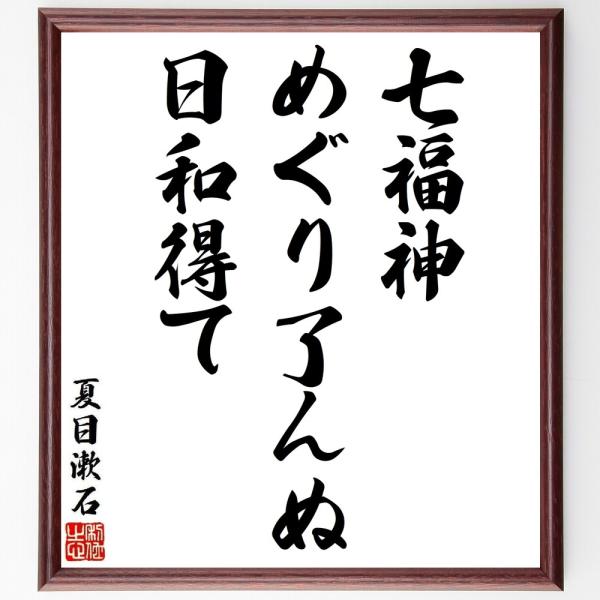 七福神
めぐり了んぬ
日和得て
夏目漱石